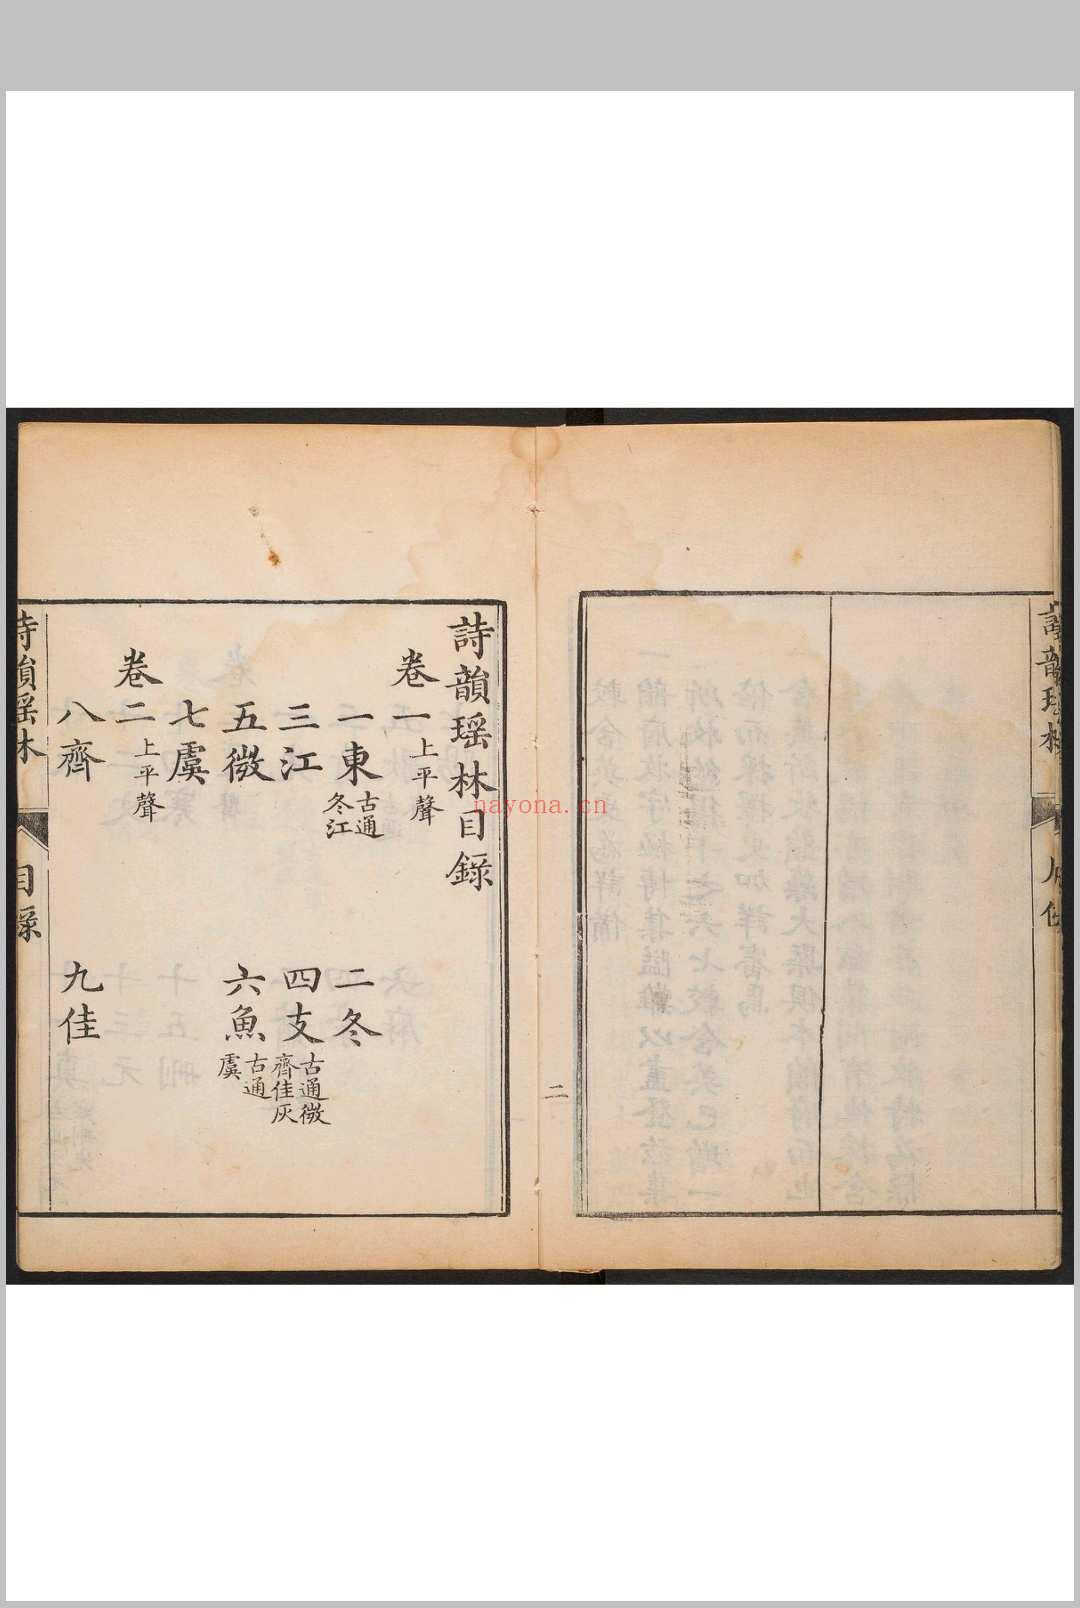 詩韻瑶
二
詩韻瑶林目録
卷一上平聲
一東古通冬江 二冬
三江 四支古通微齊佳灰
五微 六魚古通虞
七虞
卷二上平聲
八齊 九佳
詩韻瑶林 目録
nayona.cn